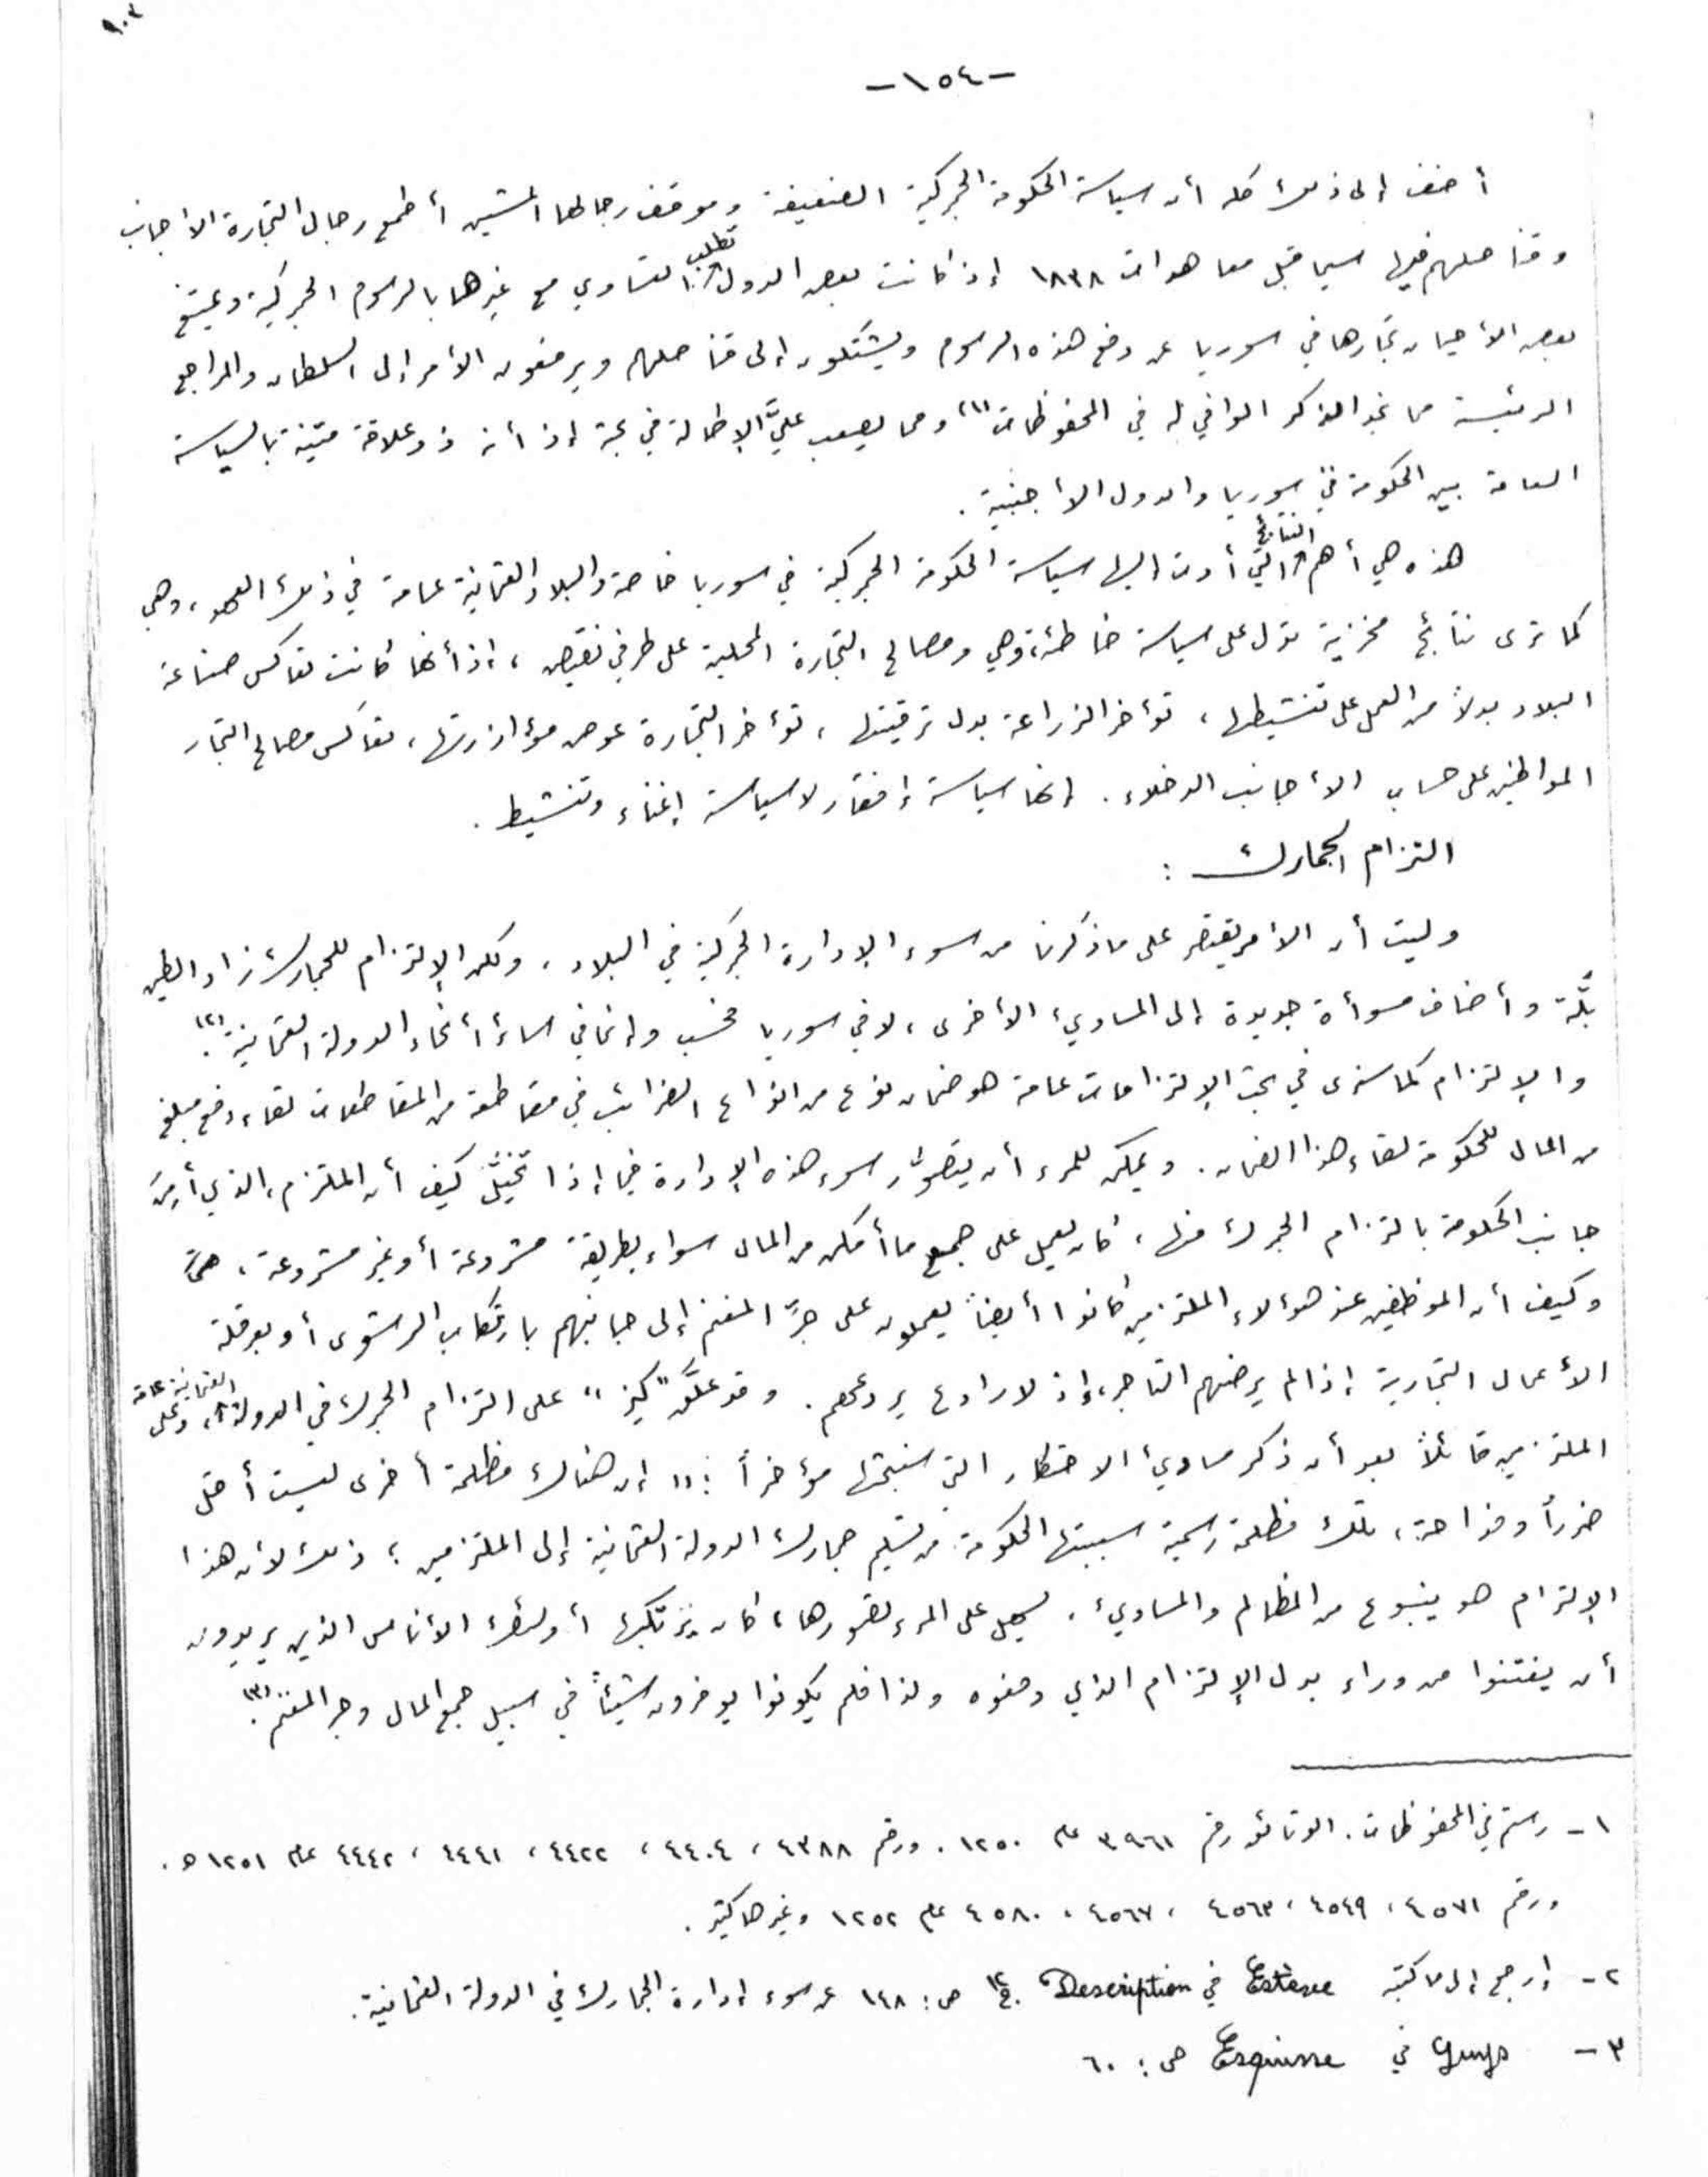 ١٠٣
-١٥٤-
أضف إلى ذلك كله أن سياسة الحكومة الجمركية الضعيفة وموقف رجالها المشين أطمع رجال التجارة الأجانب
وقناصلهم فيها سيما قبل معاهدات ١٨٣٨ إذ كانت بعض الدول تطلب التساوي مع غيرها بالرسوم الجمركية ويمتنع
بعض الأحيان تجارها في سوريا عن دفع هذه الرسوم ويشتكون إلى قناصلهم ويرفعون الأمر إلى السلطان والمراجع
الرئيسة مما نجد الذكر الوافي له في المحفوظات (١) ومما يصعب عليَّ الإطالة في بحثه إذ أنه ذو علاقة متينة بالسياسة
العامة بين الحكومة في سوريا والدول الأجنبية .
هذه هي أهم النتائج التي أدت إليها سياسة الحكومة الجمركية في سوريا خاصة والبلاد العثمانية عامة في ذلك العهد، وهي
كما ترى نتائج مخزية تدل على سياسة خاطئة، وهي ومصالح التجارة المحلية على طرفي نقيض ، إذ أنها كانت تعاكس صناعة
البلاد بدلاً من العمل على تنشيطها ، تؤخر الزراعة بدل ترقيتها ، تؤخر التجارة عوض مؤازرتها ، تعاكس مصالح التجار
المواطنين على حساب الأجانب الدخلاء . إنها سياسة إفقار لا سياسة إغناء وتنشيط .
التزام الجمارك :
وليت أن الأمر يقتصر على ما ذكرنا من سوء الإدارة الجمركية في البلاد ، ولكن الإلتزام للجمارك زاد الطين
بلَّة وأضاف مسوأة جديدة إلى المساوئ الأخرى ، لا في سوريا فحسب وإنما في سائر أنحاء الدولة العثمانية (٢).
والإلتزام كما سنرى في بحث الإلتزامات عامة هو ضمان نوع من انواع الضرائب في مقاطعة من المقاطعات لقاء دفع مبلغ
من المال للحكومة لقاء هذا الضمان . ويمكن للمرء أن يتصوَّر سوء هذه الإدارة فيما إذا تخيَّل كيف أن الملتزم، الذي أُمِنَ
جانب الحكومة بالتزام الجمرك منها ، كان يعمل على جمع ما أمكن من المال سواء بطريقة مشروعة أو غير مشروعة ،
وكيف أن الموظفين عند هؤلاء الملتزمين كانوا أيضاً يعملون على جرِّ المغنم إلى جانبهم بارتكاب الرشوى أو بعرقلة
الأعمال التجارية إذا لم يرضهم التاجر، إذ لا رادع يردعهم . وقد علَّق "كيز" على التزام الجمرك في الدولة العثمانية عامة، وعلى
الملتزمين قائلاً بعد أن ذكر مساوئ الاحتكار التي سنبحثها مؤخراً : " إن هناك مظلمة أخرى ليست أقل
ضرراً وفداحة ، تلك مظلمة رسمية سببتها الحكومة من تسليم جمارك الدولة العثمانية إلى الملتزمين ؛ ذلك لأن هذا
الإلتزام هو ينبوع من المظالم والمساوئ ، يسهل على المرء تصورها ، كان يرتكبها أولئك الأناس الذين يريدون
أن يغتنوا من وراء بدل الإلتزام الذي دفعوه ولذا فلم يكونوا يوفرون شيئاً في سبيل جمع المال وجر المغنم (٣).
١- رستم في المحفوظات . الوثائق رقم ٣٩٦١ عام ١٢٥٠ . ورقم ٤٣٨٨ ، ٤٤٠٤ ، ٤٤٢٢ ، ٤٤٤١ ، ٤٤٤٢ عام ١٢٥١ هـ .
ورقم ٤٥٧١ ، ٤٥٤٩ ، ٤٥٦٣ ، ٤٥٦٧ ، ٤٥٨٠ عام ١٢٥٢ وغيرها كثير .
٢- إرجع إلى ما كتبه Estève في Description ج ١٢ ص : ١٤٨ عن سوء إدارة الجمارك في الدولة العثمانية .
٣- Guys في Esquisse ص : ٦٠